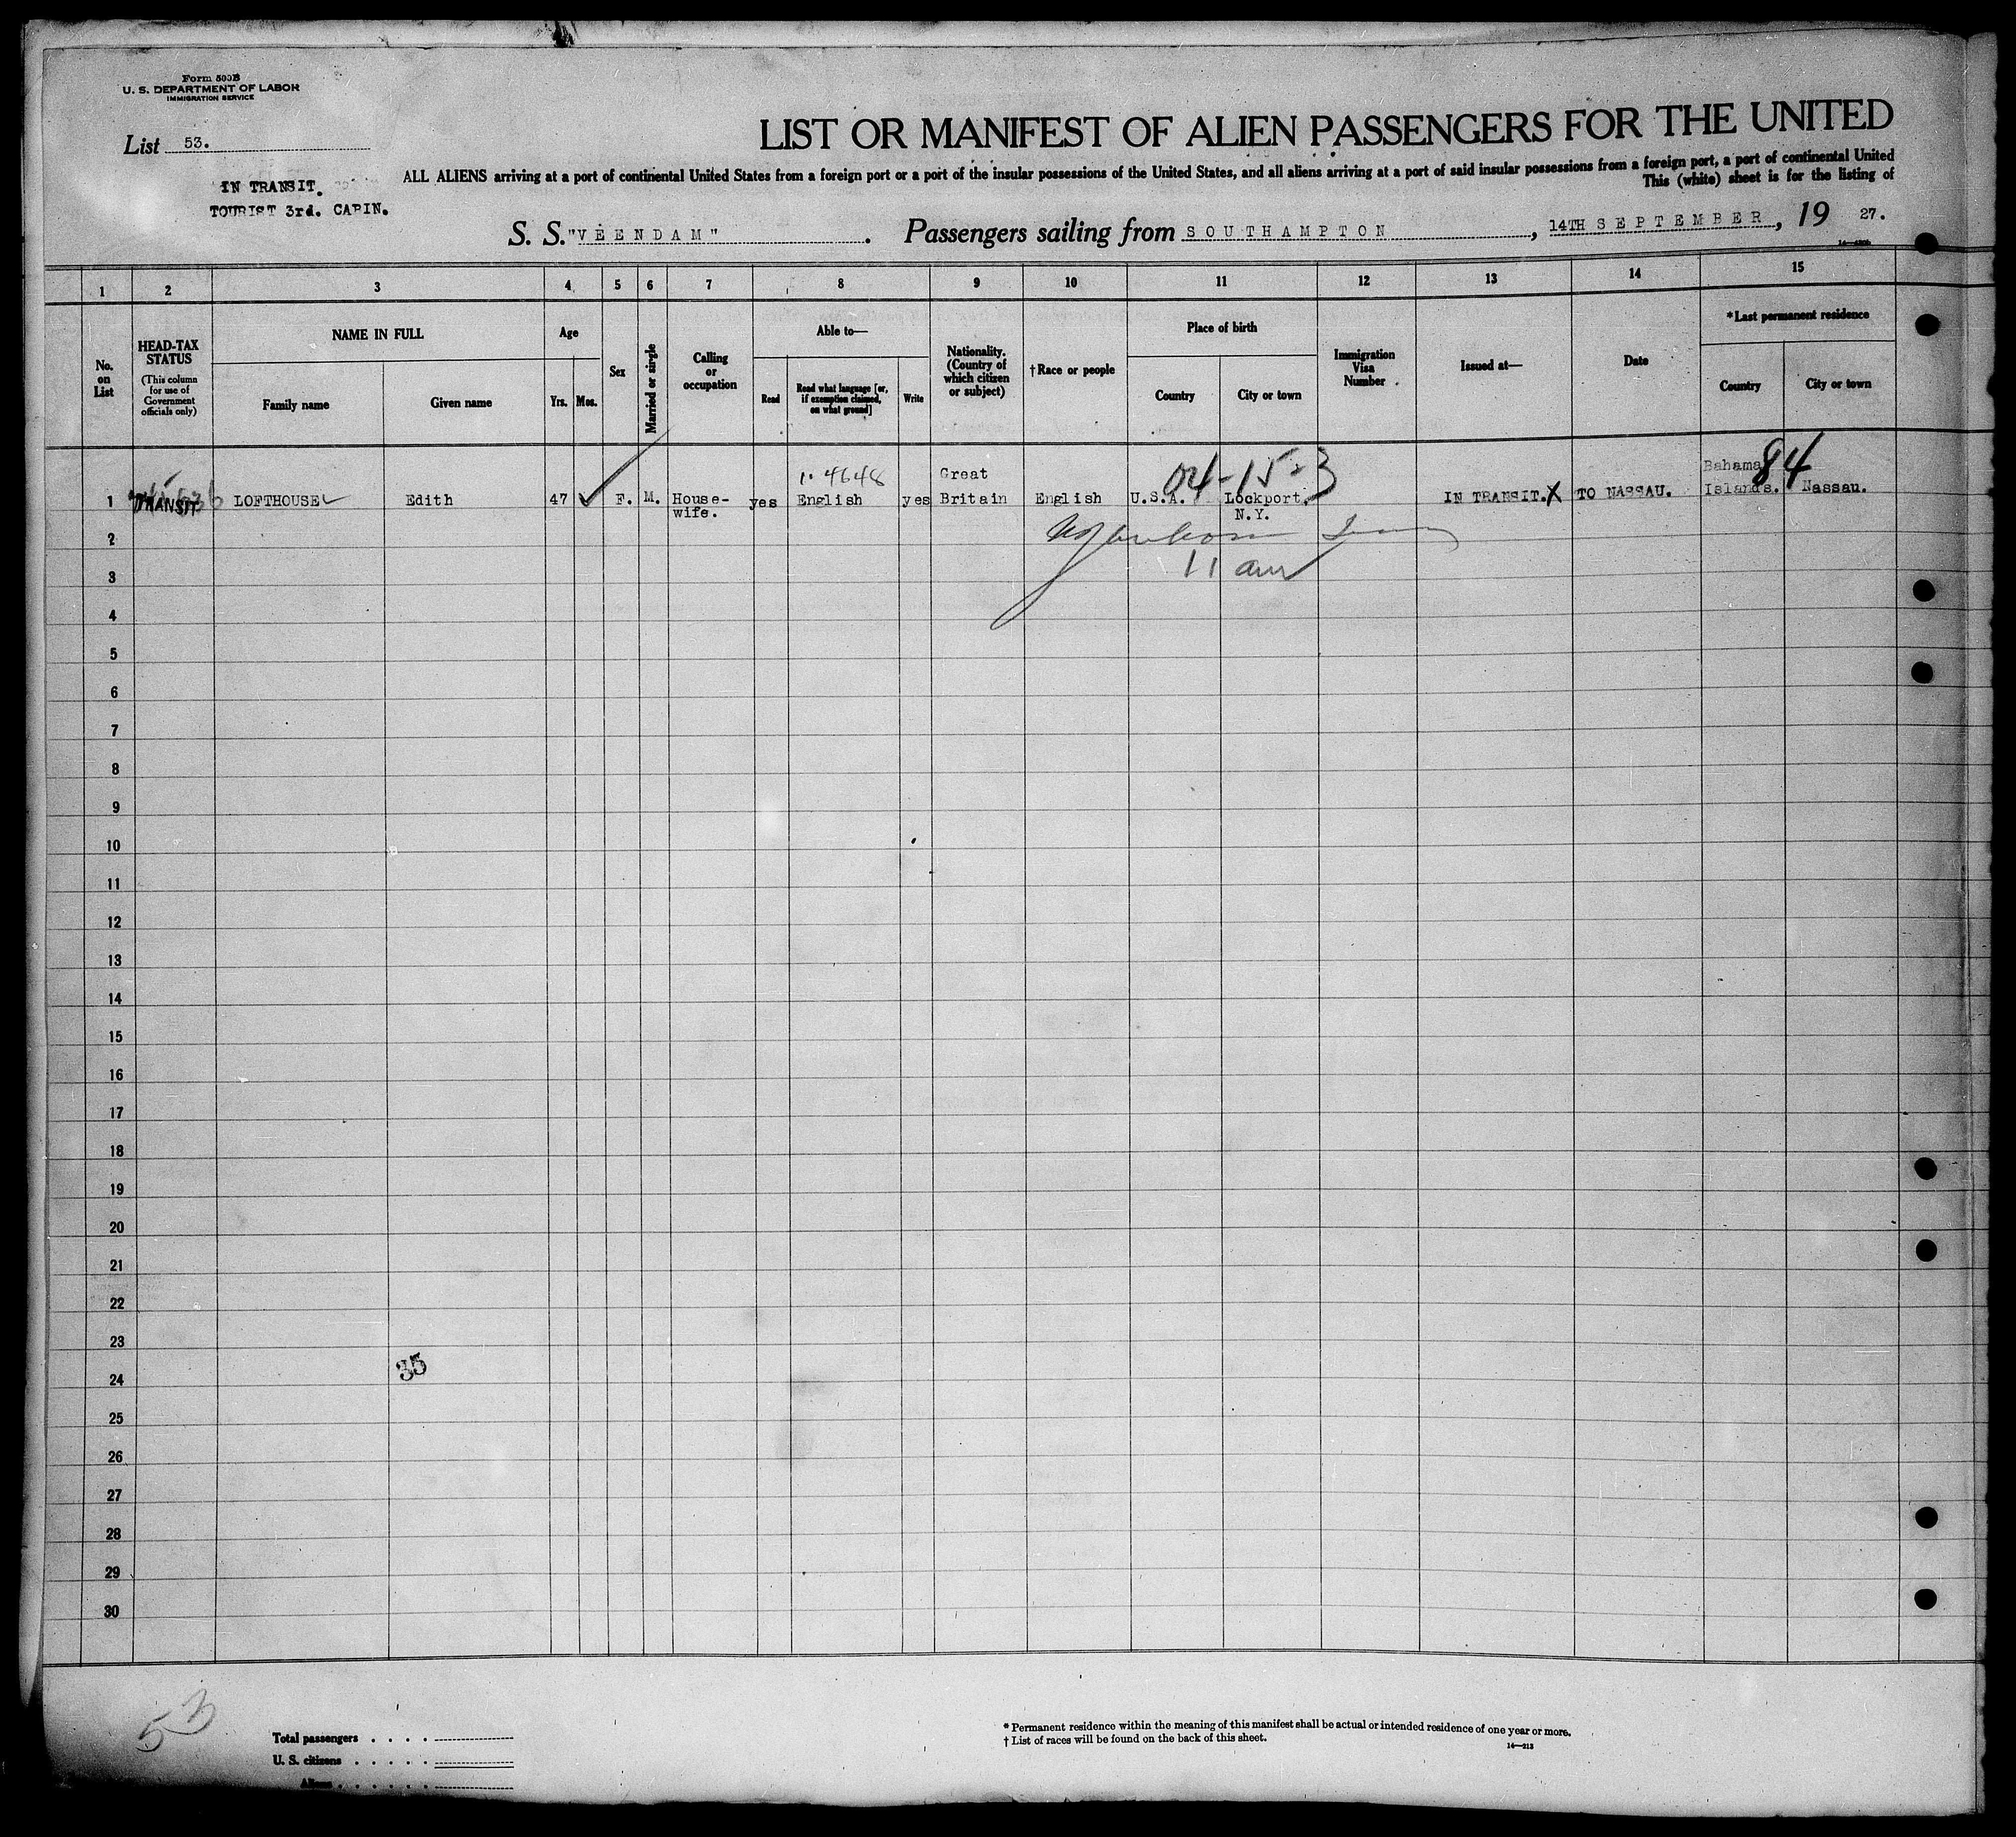 Form 500B
U. S. DEPARTMENT OF LABOR
IMMIGRATION SERVICE
List 53.
LIST OR MANIFEST OF ALIEN PASSENGERS FOR THE UNITED
IN TRANSIT.
TOURIST 3rd. CABIN.
ALL ALIENS arriving at a port of continental United States from a foreign port or a port of the insular possessions of the United States, and all aliens arriving at a port of said insular possessions from a foreign port, a port of continental United
This (white) sheet is for the listing of
S. S. "VEENDAM" . Passengers sailing from SOUTHAMPTON , 14TH SEPTEMBER , 19 27.
1 2 3 4 5 6 7 8 9 10 11 12 13 14 15
No. on List
HEAD-TAX STATUS
(This column for use of Government officials only)
NAME IN FULL
Family name Given name
Age
Yrs. Mos.
Sex
Married or single
Calling or occupation
Able to—
Read
Read what language [or, if exemption claimed, on what ground]
Write
Nationality. (Country of which citizen or subject)
†Race or people
Place of birth
Country City or town
Immigration Visa Number
Issued at—
Date
*Last permanent residence
Country City or town
1 TRANSIT LOFTHOUSE Edith 47 F. M. House-wife. yes English yes Great Britain English U.S.A. Lockport, N.Y. IN TRANSIT. X TO NASSAU. Bahama Islands. Nassau.
1-4648
04-15-3
84
11 am
2
3
4
5
6
7
8
9
10
11
12
13
14
15
16
17
18
19
20
21
22
23
35
24
25
26
27
28
29
30
53
Total passengers . . . .
U. S. citizens . . . . .
Aliens . . . . . .
* Permanent residence within the meaning of this manifest shall be actual or intended residence of one year or more.
† List of races will be found on the back of this sheet.
14—213